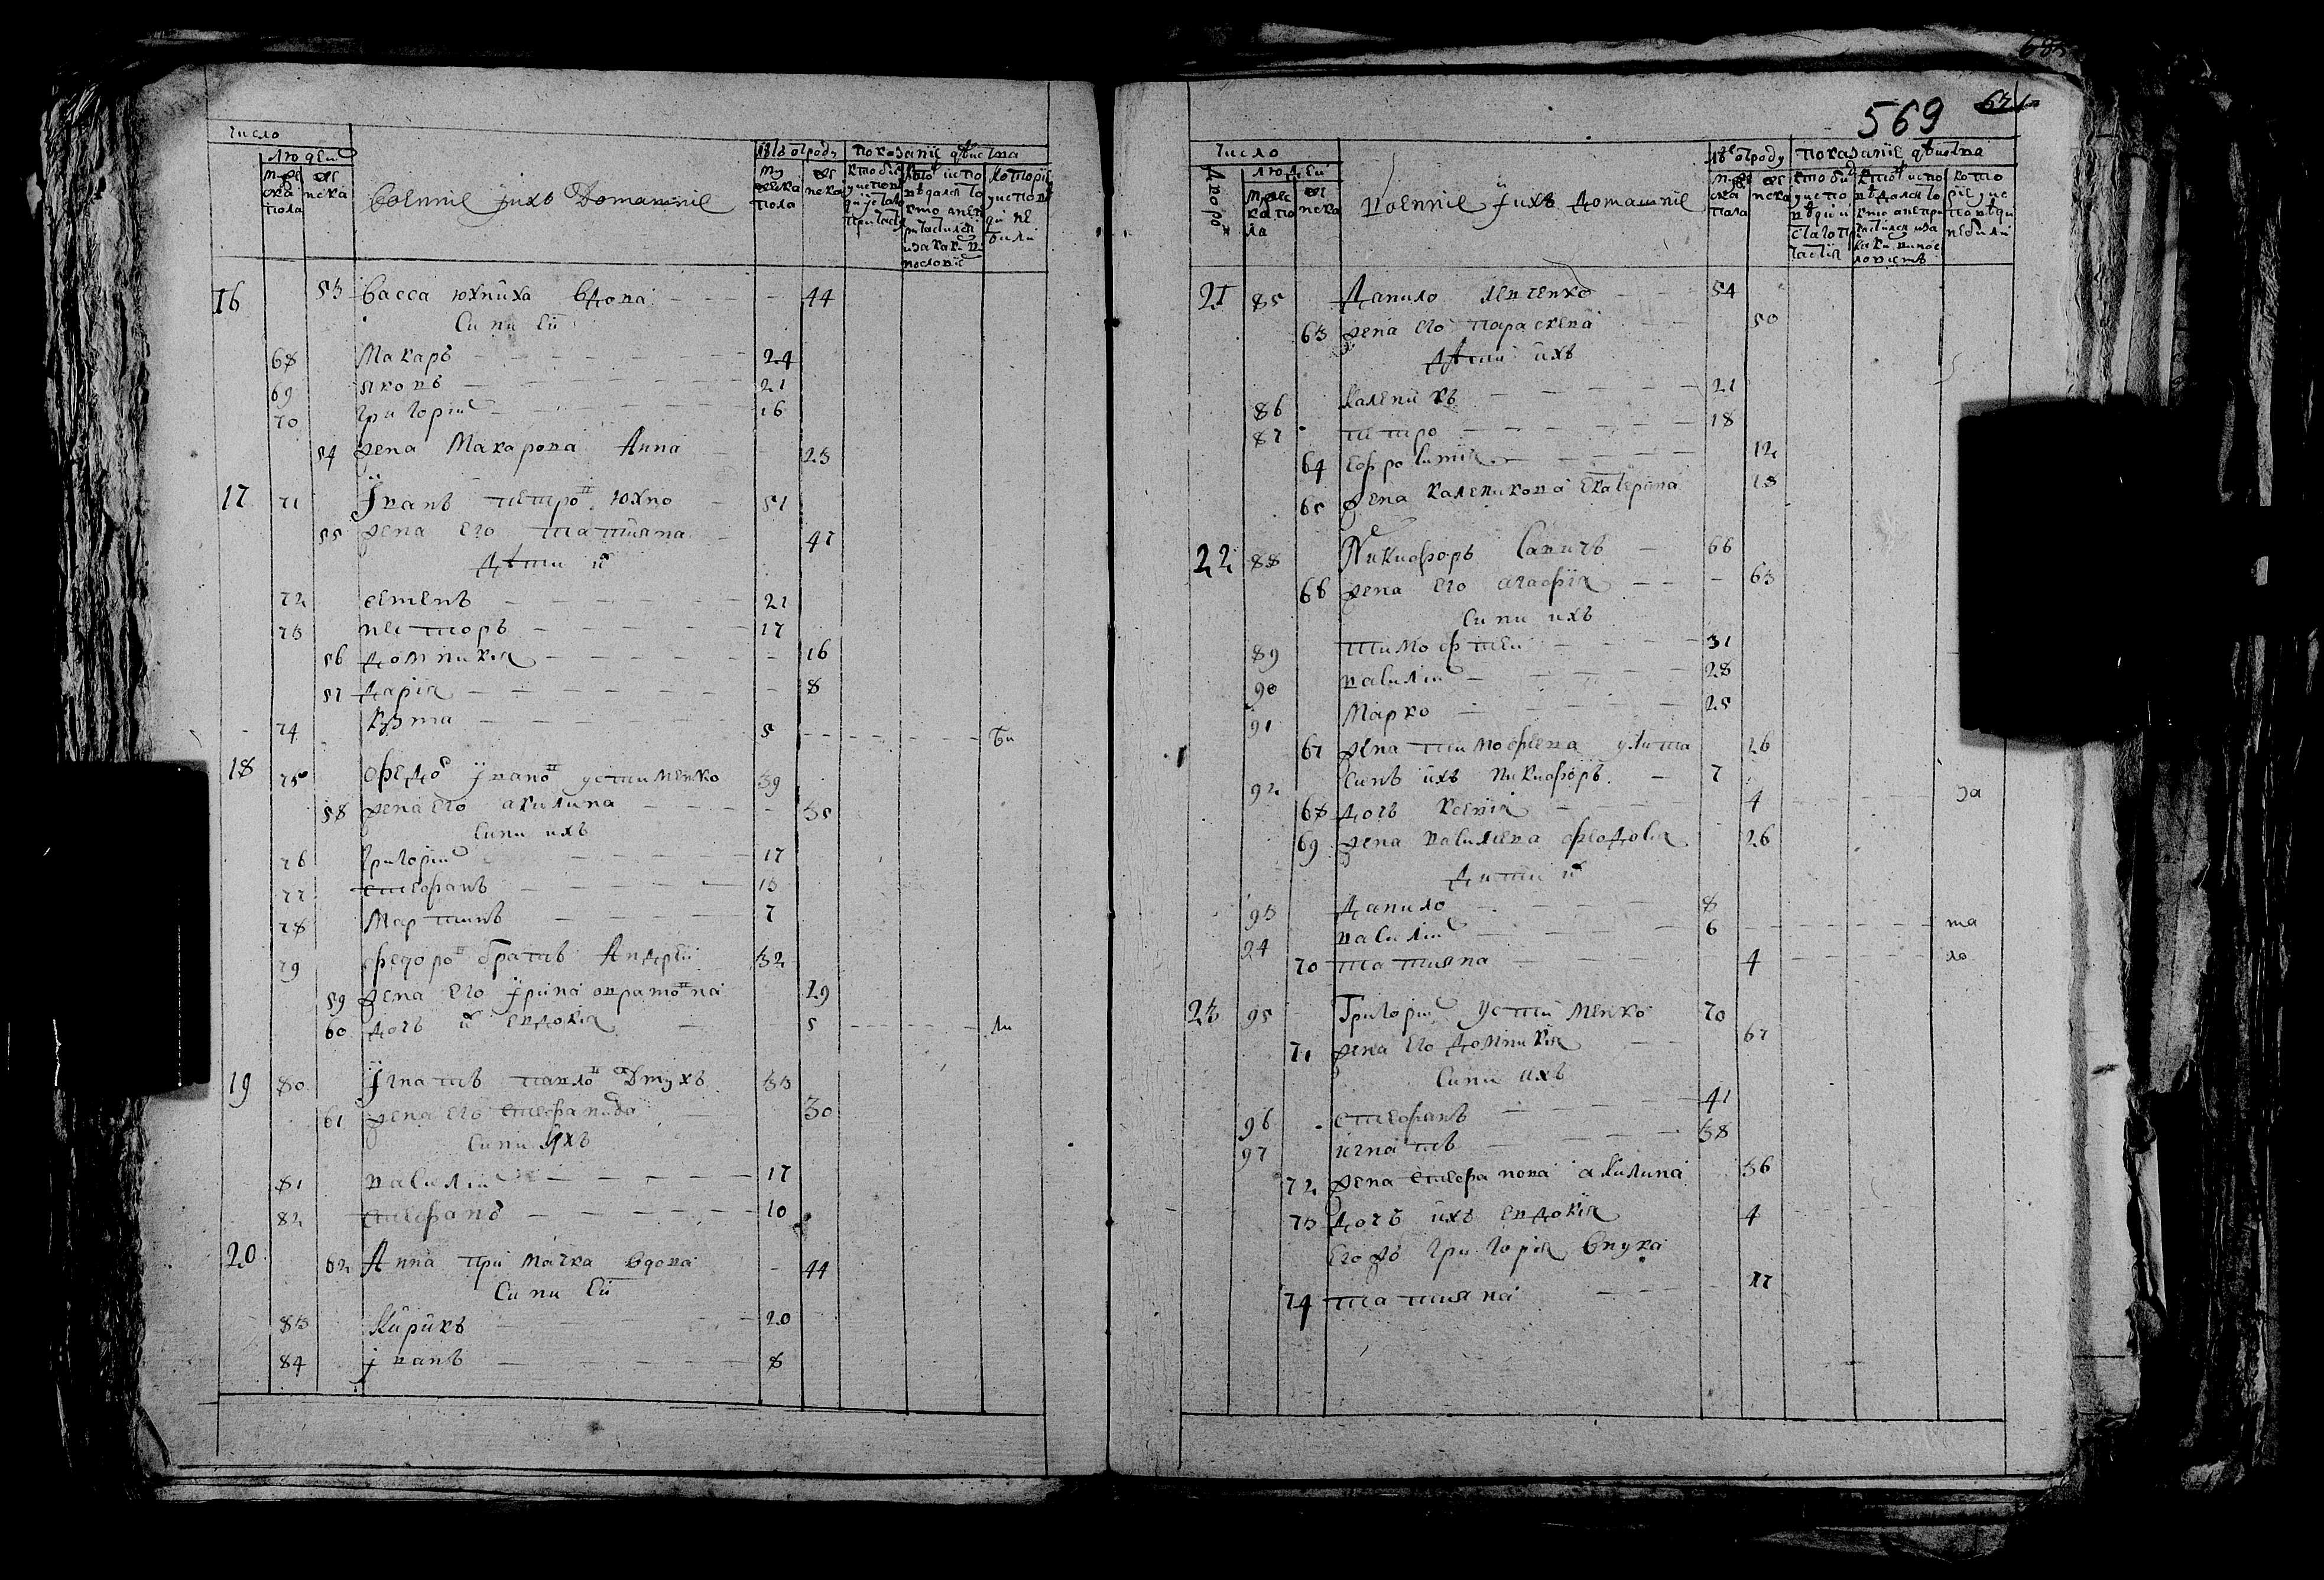 число
людей
мужеска пола
женска
Военние и ихъ Домашние
Лѣта отроду
показание дѣиства
16 53 васса юхниха вдова 44
Сини Еи
68 Макаръ 24
69 яковъ 21
70 григории 16
54 жена Макарова Анна 23
17 71 Иванъ петровъ юхно 51
55 жена его татияна 47
Дѣти ихъ
72 семенъ 21
73 несторъ 17
56 домникия 16
57 дария 8
74 кузма 5 би
18 75 федоръ ивановъ устименко 39
58 жена его акилина 35
Сини ихъ
76 григории 17
77 стефанъ 13
78 Мартинъ 7
79 федоровъ братъ Андреи 32
59 жена его ирина 29
60 дочь ихъ евдокия 5 ли
19 80 Игнатъ павловъ 33
61 жена его стефанида 30
Сини ихъ
81 василии 17
82 стефанъ 10
20 62 Анна примачка вдова 44
Сини Еи
83 Кирикъ 20
84 иванъ 8
569
число
дворовъ
людей
мужеска пола
женска
военние и ихъ домашние
лѣта отроду
показание дѣиства
21 85 Данило левченко 54
63 жена его параскева 50
дѣти ихъ
86 каленикъ 21
87 петро 18
64 ефросиния 12
65 жена каленикова екатерина 18
22 88 Никифоръ Савичъ 66
66 жена его агафия 63
Сини ихъ
89 тимофтеи 31
90 василии 28
91 Марко 25
67 жена тимофеева улита 26
92 Синъ ихъ никифоръ 7
68 дочь ксения 4 за
69 жена василиева феодосия 26
дити ихъ
93 данило 8
94 василии 6 ма
70 татияна 4 ло
23 95 Григории устименко 70
71 жена его домникия 67
Сини ихъ
96 стефанъ 41
97 игнатъ 38
72 жена стефанова акилина 36
73 дочь ихъ евдокия 4
его жъ григория внука
74 татияна 17